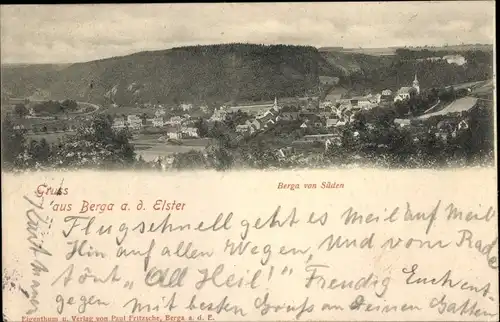 Gruss
aus Berga a. d. Elster
Berga von Süden
Flugschnell geht es Meil auf Meil
Hin auf allen Wegen, Und vom Rade
tönt „All Heil"! Freudig Euch ent-
gegen. Mit besten Gruss an Deinen Gatten
Kurt
Eigenthum u. Verlag von Paul Fritzsche, Berga a. d. E.